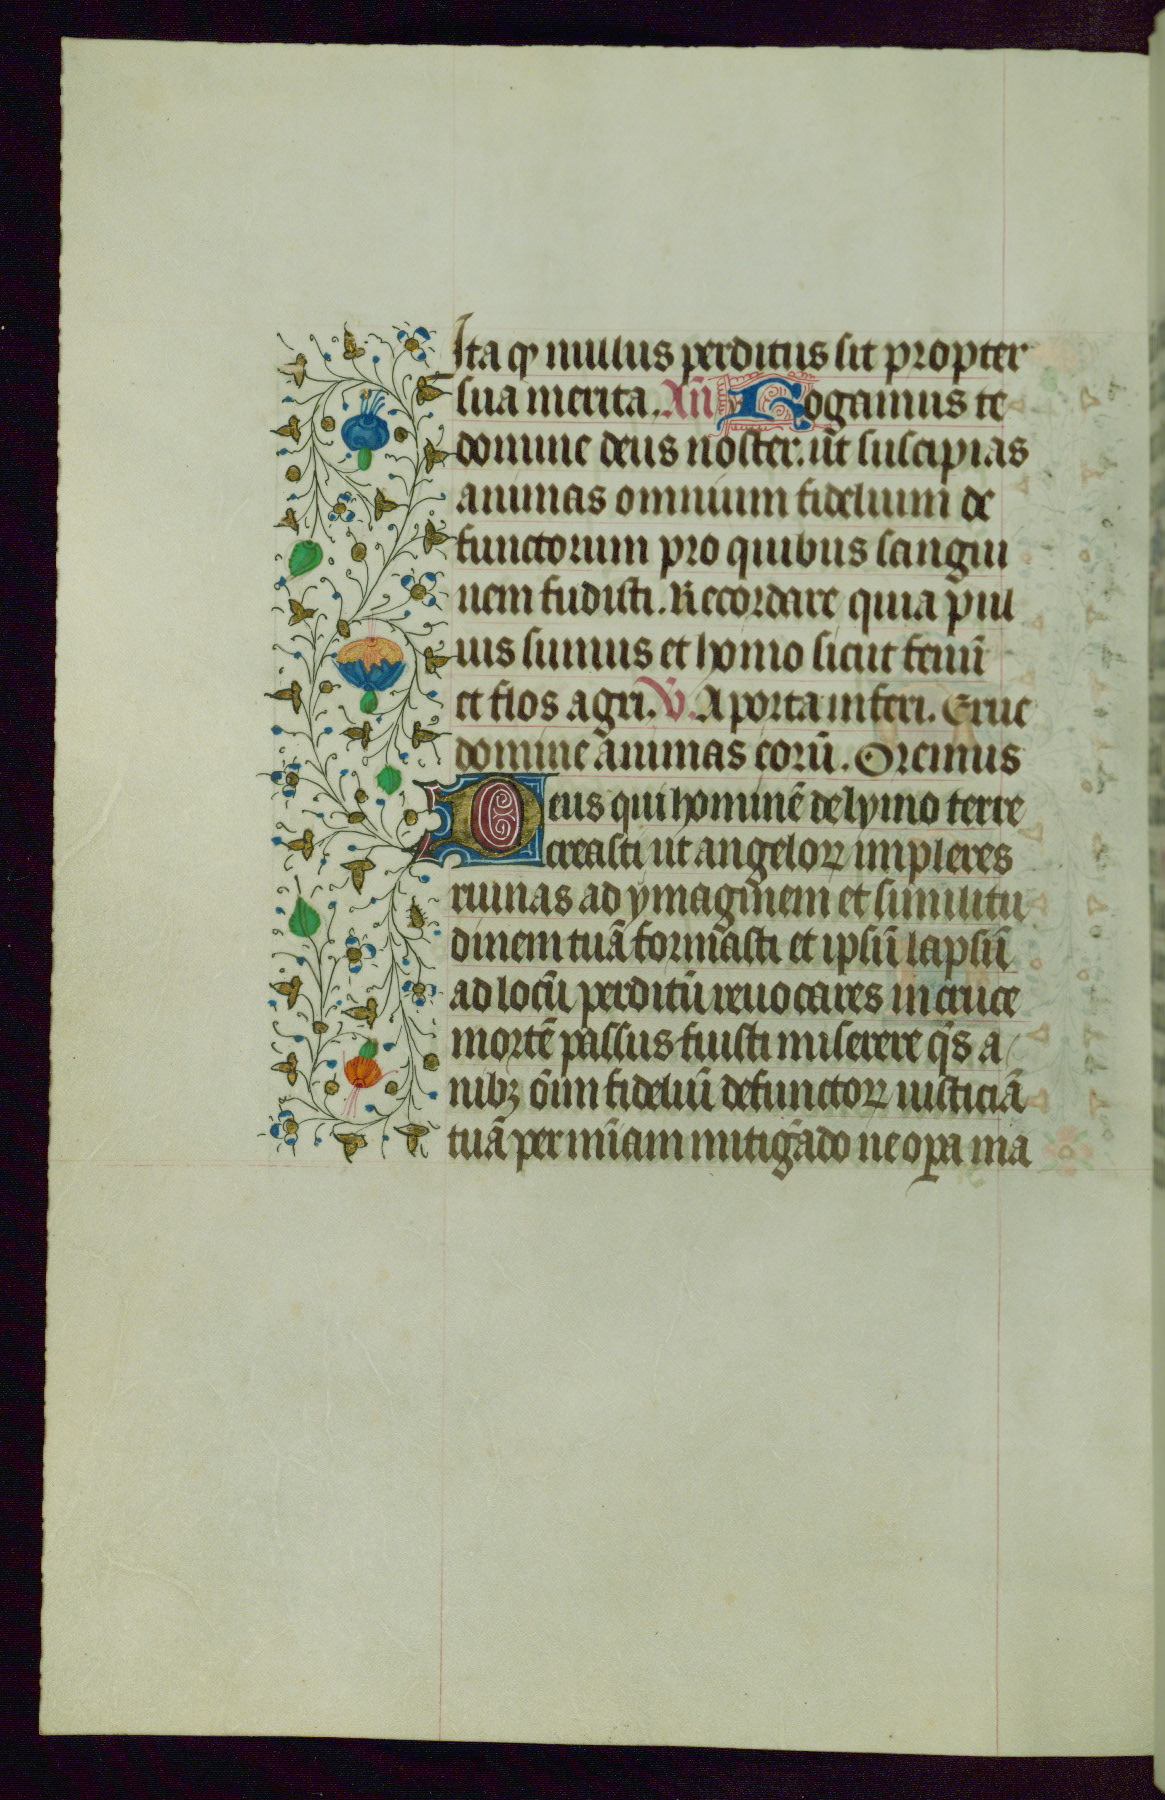 Ita qꝫ nullus perditus sit propter
sua merita. An̄ Rogamus te
domine deus noster. ut suscipias
animas omnium fidelium de
functorum pro quibus sangui
nem fudisti. Recordare quia pul
uis sumus et homo sicut fenū
et flos agri. V̄. A porta inferi. Erue
domine animas eorū. Oremus
Deus qui hominē de lymo terre
creasti ut angeloꝝ impleres
ruinas ad ymaginem et similitu
dinem tuā formasti et ipsū lapsū
ad locū perditū reuocares in cruce
mortē passus fuisti miserere q̄s a
nibꝫ om̄m fideliū defunctoꝝ iusticiā
tuā per mīam mitigādo ne oꝑa ma